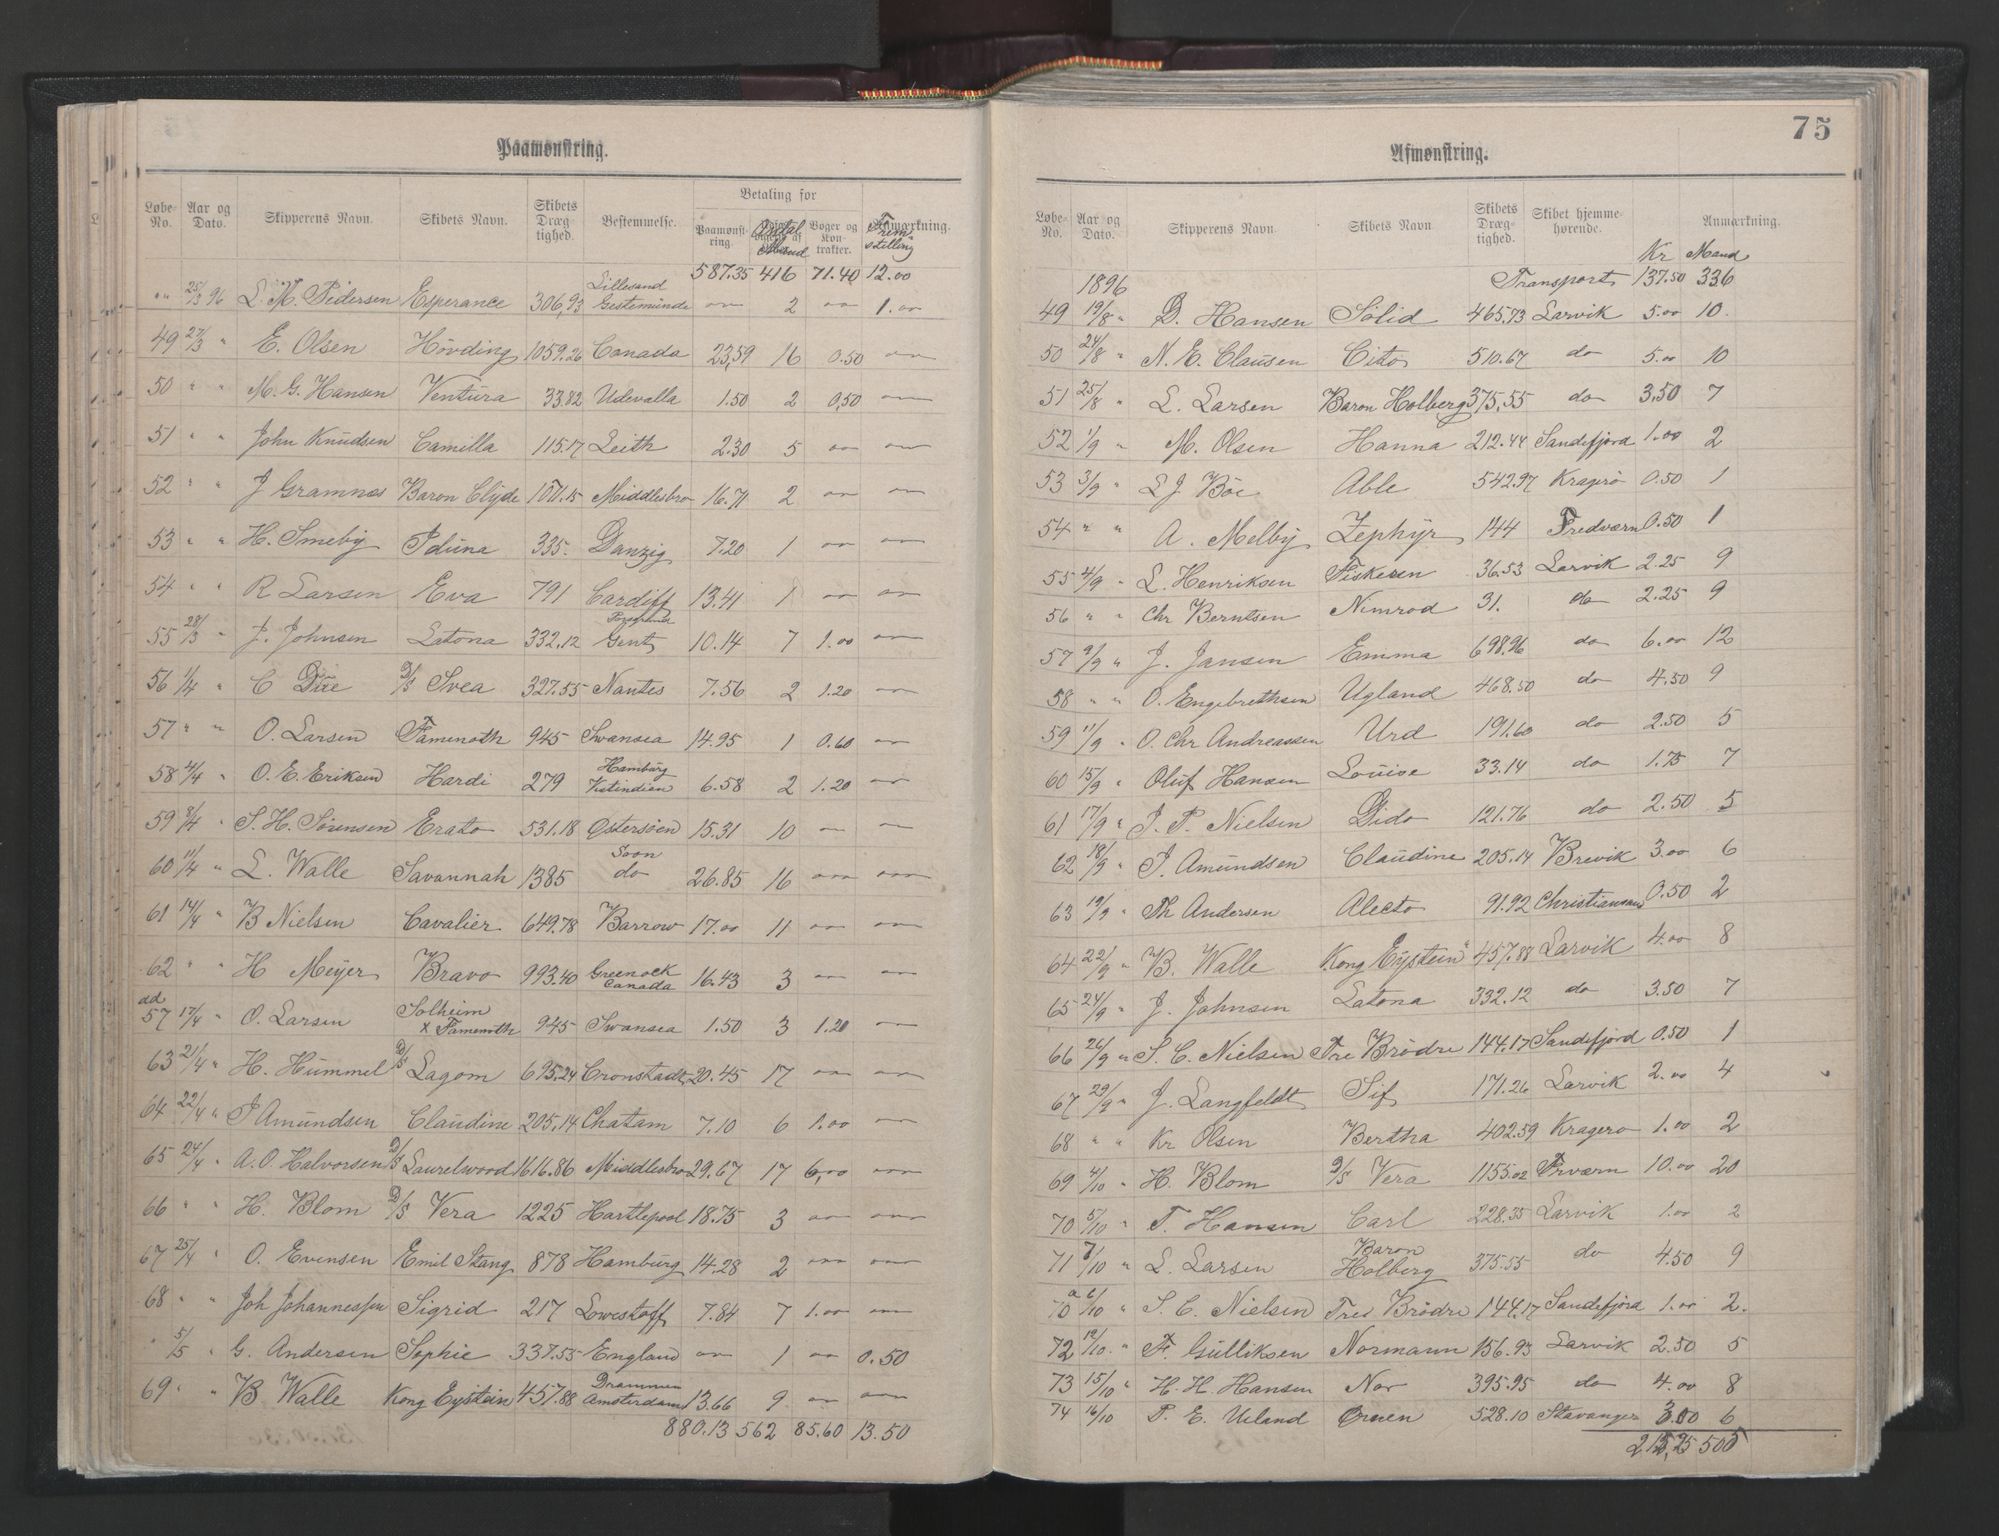 75
Paamønstring.
Løbe-No. Aar og Dato. Skipperens Navn. Skibets Navn. Skibets Dræg-tighed. Bestemmelse. Betaling for Paamønst-ring. Antal Mand Bøger og Kon-trakter. Anmærkning. Frem-stilling
587.35 416 71.40 12.00
" " 25/3 96 L. M. Pedersen Esperance 306,93 Lillesand Gestemünde " 2 " 1.00
49 27/3 " E. Olsen Hövding 1059.26 Canada 23,59 16 0.50 "
50 " " M. G. Hansen Ventura 33.82 Udevalla 1.50 2 0,50 "
51 " " John Knudsen Camilla 115.17 Leith 2.30 5 " "
52 " " J Gramnæs Baron Clyde 1011.15 Middlesbro 16.71 2 " "
53 " " H. Smeby Iduna 335. Danzig 7.20 1 " "
54 " " R Larsen Eva 791 Cardiff 13.41 1 " "
55 28/3 " J. Johnsen Latona 332.12 Gent 10.14 7 1.00 "
56 1/4 " C Düe D/S Svea 327.55 Nantes 7.56 2 1.20 "
57 " " O. Larsen Famenoth 945 Swansea 14.95 1 0.60 "
58 4/4 " O. E. Eriksen Hardi 279 Hamburg Vestindien 6.58 2 1.20 "
59 8/4 " S. H. Sørensen Erato 531.18 Østersøen 15.31 10 " "
60 11/4 " L. Walle Savannah 1385 Soon do 26.85 16 " "
61 14/4 " B Nielsen Cavalier 649.78 Barrow 17.00 11 " "
62 " " H Meyer Bravo 993.40 Greenock Canada 16.43 3 " "
ad 57 17/4 " O. Larsen Solheim x Famenoth 945 Swansea 1.50 3 1.20 "
63 21/4 " H. Hummel D/S Lagom 695.24 Cronstadt 20.45 17 " "
64 22/4 " J Amundsen Claudine 205.14 Chatam 7.10 6 1.00 "
65 24/4 " A. O. Halvorsen D/S Laurelwood 1616.86 Middlesbro 29.67 17 6,00 "
66 " " H. Blom D/S Vera 1225 Hartlepool 18.75 3 " "
67 25/4 " O. Evensen Emil Stang 878 Hamburg 14.28 2 " "
68 " " Joh Johannessen Sigrid 217 Lowestoff 7.84 7 1.00 "
" 5/5 " G. Andersen Sophie 337.55 England " 1 " 0.50
69 " " B Walle Kong Eystein 457.88 Drammen Amsterdam 13.66 9 " "
880.13 562 85.60 13.50
Afmønstring.
Løbe-No. Aar og Dato. Skipperens Navn. Skibets Navn Skibets Dræg-tighed. Skibet hjemme-hørende. Anmærkning.
Kr Mand
1896 Transport 137.50 336
49 19/8 " D. Hansen Solid 465.73 Larvik 5.00 10.
50 24/8 " N. E. Clausen Cito 510.67 do 5.00 10
51 25/8 " L. Larsen Baron Holberg 375,55 do 3,50 7
52 1/9 " M. Olsen Hanna 212.44 Sandefjord 1.00 2
53 3/9 " L J Böe Able 542.97 Kragerö 0.50 1
54 " " A. Melby Zephyr 144 Fredværn 0.50 1
55 4/9 " L. Henriksen Fiskeren 36.53 Larvik 2.25 9
56 " " Chr Berntsen Nimrod 31. do 2.25 9
57 9/9 " J. Jansen Emma 698.96 do 6.00 12
58 " " O. Engebrethsen Ugland 468.50 do 4.50 9
59 11/9 " O. Chr Andreassen Urd 191.60 do 2.50 5
60 15/9 " Oluf Hansen Louise 33.14 do 1.75 7
61 17/9 " J. P. Nielsen Dido 121.76 do 2.50 5
62 18/9 " J. Amundsen Claudine 205.14 Brevik 3.00 6
63 19/9 " Th Andersen Alecto 91.92 Christiansand 0.50 2
64 22/9 " B. Walle Kong Eystein 457.88 Larvik 4.00 8
65 24/9 " J. Johnsen Latona 332.12 do 3.50 7
66 26/9 " S. C. Nielsen Tre Brödre 144.17 Sandefjord 0.50 1
67 29/9 " J. Langfeldt Sif 171.26 Larvik 2.00 4
68 " " Kr Olsen Bertha 402.59 Kragerö 1.00 2
69 4/10 " H. Blom D/S Vera 1155.02 Frværn 10.00 20
70 5/10 " T. Hansen Carl 228.35 Larvik 1.00 2
71 7/10 " L. Larsen Baron Holberg 375.55 do 4.50 9
70a 6/10 " S. C. Nielsen Tre Brödre 144.17 Sandefjord 1.00 2.
72 12/10 " F. Gulliksen Normann 156.93 Larvik 2.50 5
73 15/10 " H. H. Hansen Nor 395.95 do 4.00 8
74 16/10 P. E. Ueland Ørnen 528.10 Stavanger 3.00 6
215,25 505